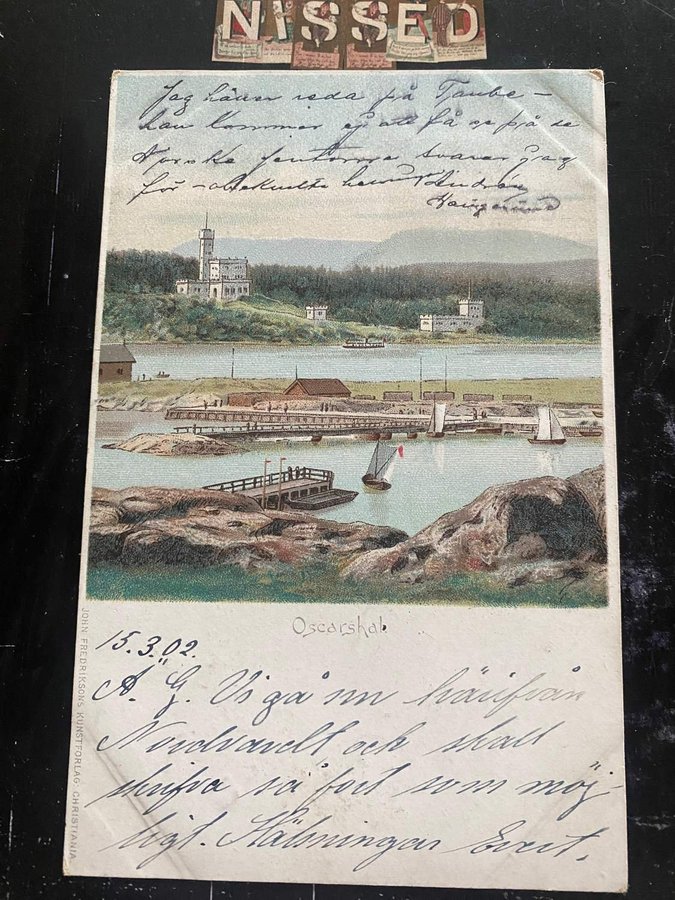 NISSED
Jag på Taube –
kommer ej att få se på de
Norske svarar jag
för – obekanta
Oscarshal
15.3.02.
Ä. G. Vi gå nu härifrån
Nordvardt och skall
skrifva så fort som möj-
ligt. Hälsningar Evert.
JOHN FREDRIKSONS KUNSTFORLAG. CHRISTIANIA.